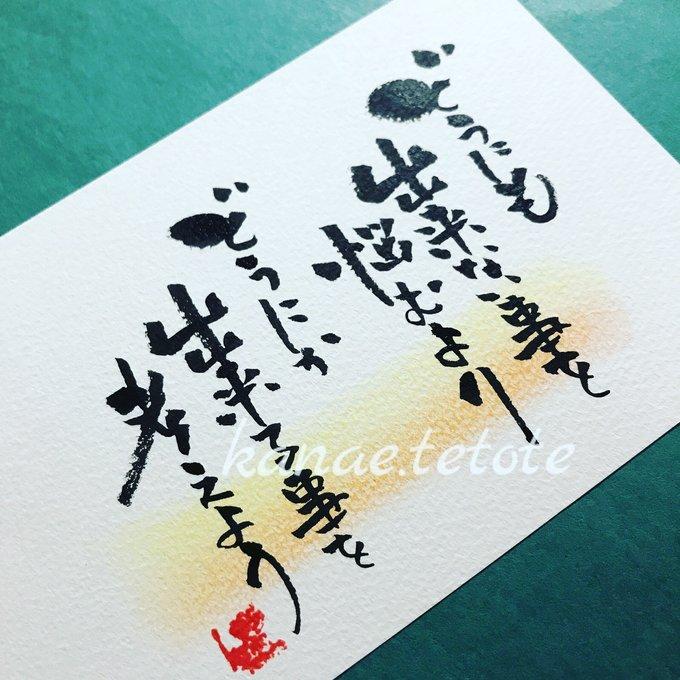 どうにも
出来ない事を
悩むより
どうにか
出来る事を
考えよう
kanae.tetote